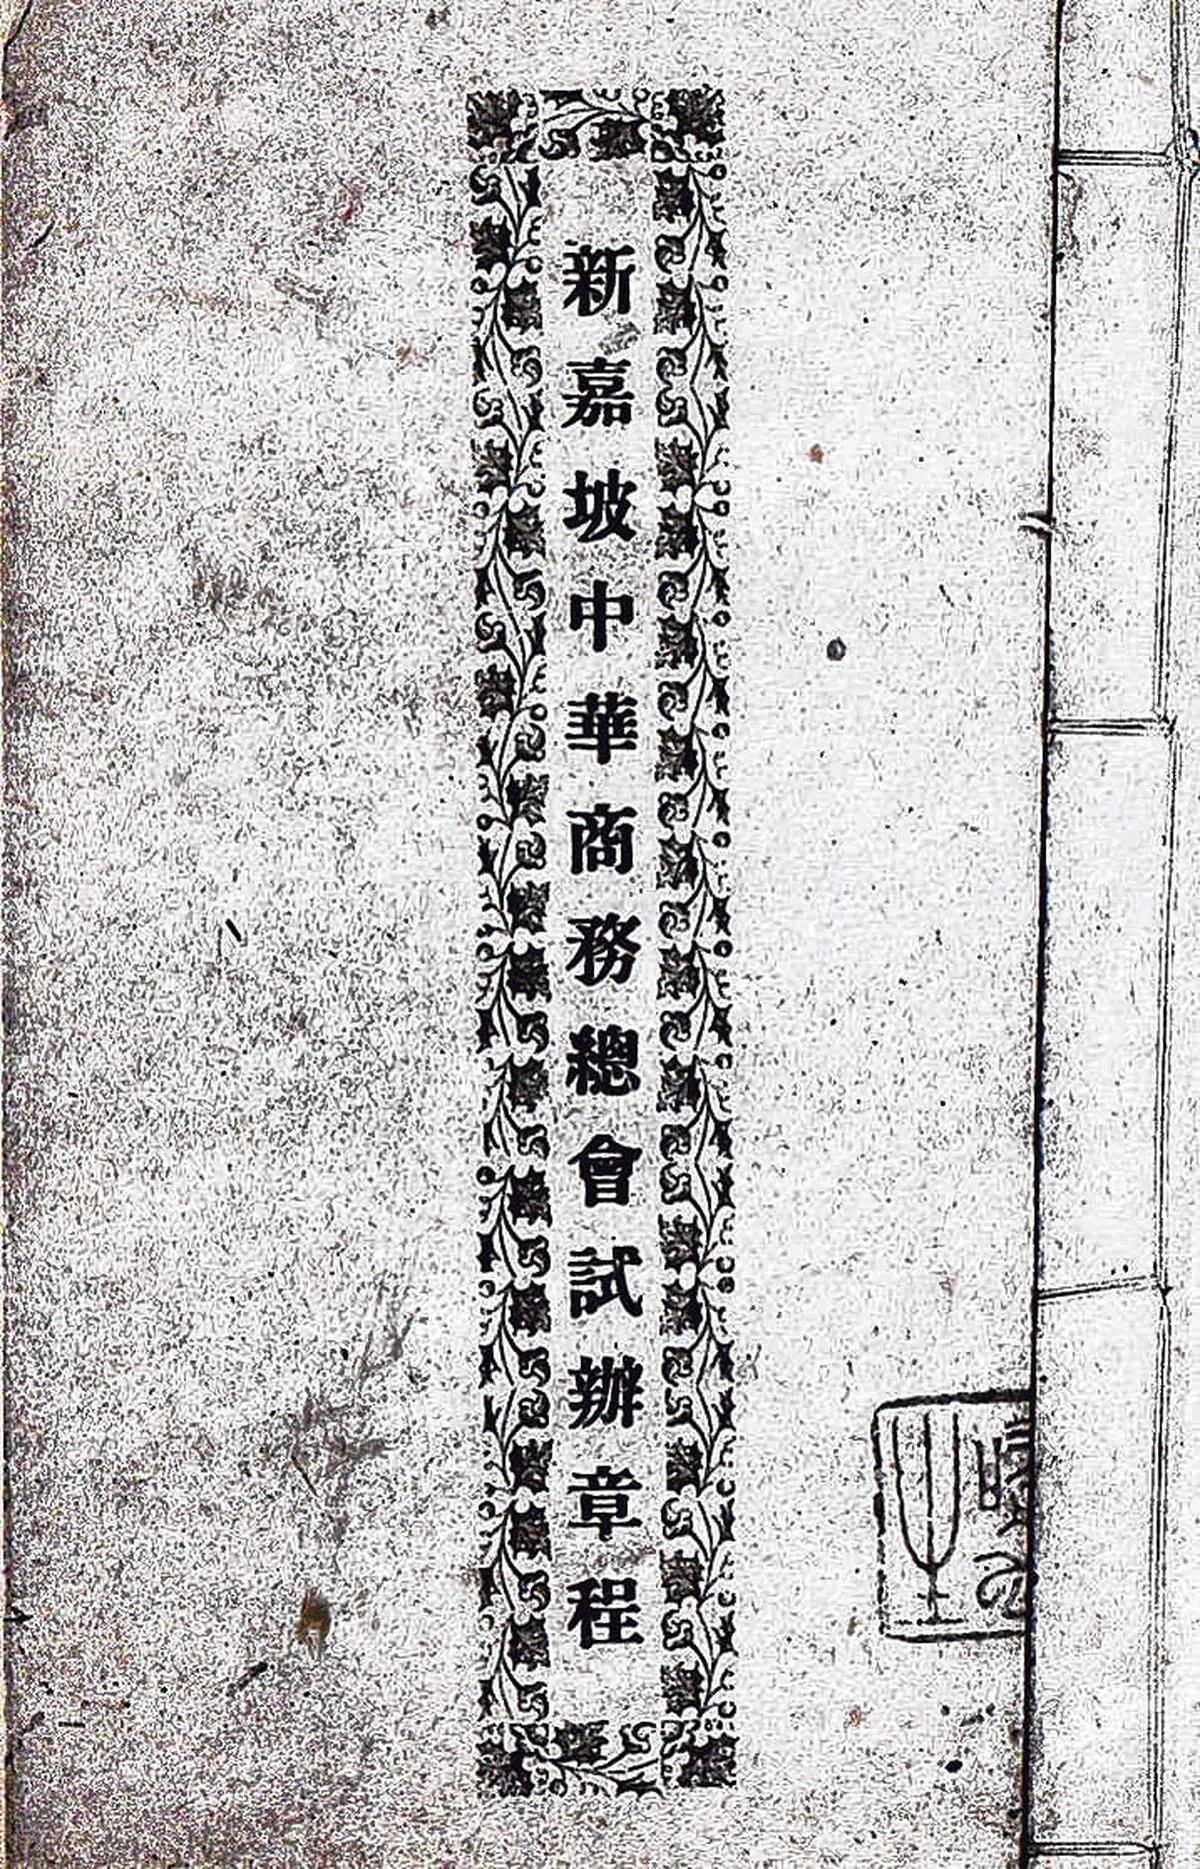 新嘉坡中華商務總會試辦章程